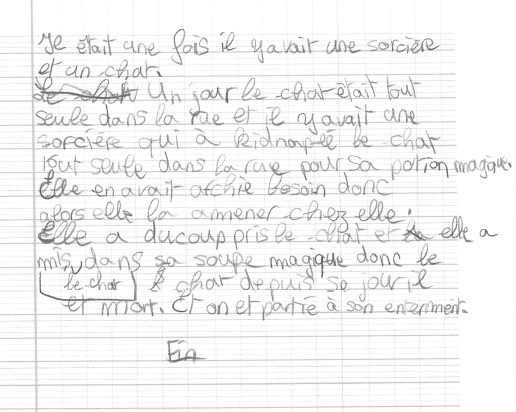 Il était une fois il y avait une sorcière
et un chat.
Le chat Un jour le chat était tout
seule dans la rue et il y avait une
sorcière qui à kidnappée le chat
tout seule dans la rue pour sa potion magique.
Elle en avait archie besoin donc
alors elle la amener chez elle.
Elle a ducoup pris le chat et elle a
mis, dans sa soupe magique donc le
le chat chat depuis se jour il
et mort. Et on et partie à son enterriment.
Fin